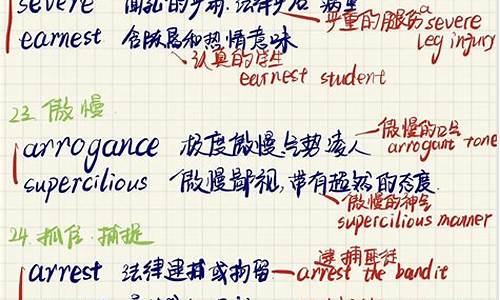 severe
严重的腿伤 a severe leg injury
earnest 含
和热情意味
认真的学生
earnest student
23. 傲慢
arrogance 极度傲慢, 气势凌人
傲慢的口气
arrogant tone
supercilious 傲慢鄙视, 带有超然的态度
傲慢的神气
supercilious manner
24. 抓住. 捕捉
arrest 法律逮捕或拘留
逮捕匪徒
arrest the bandit